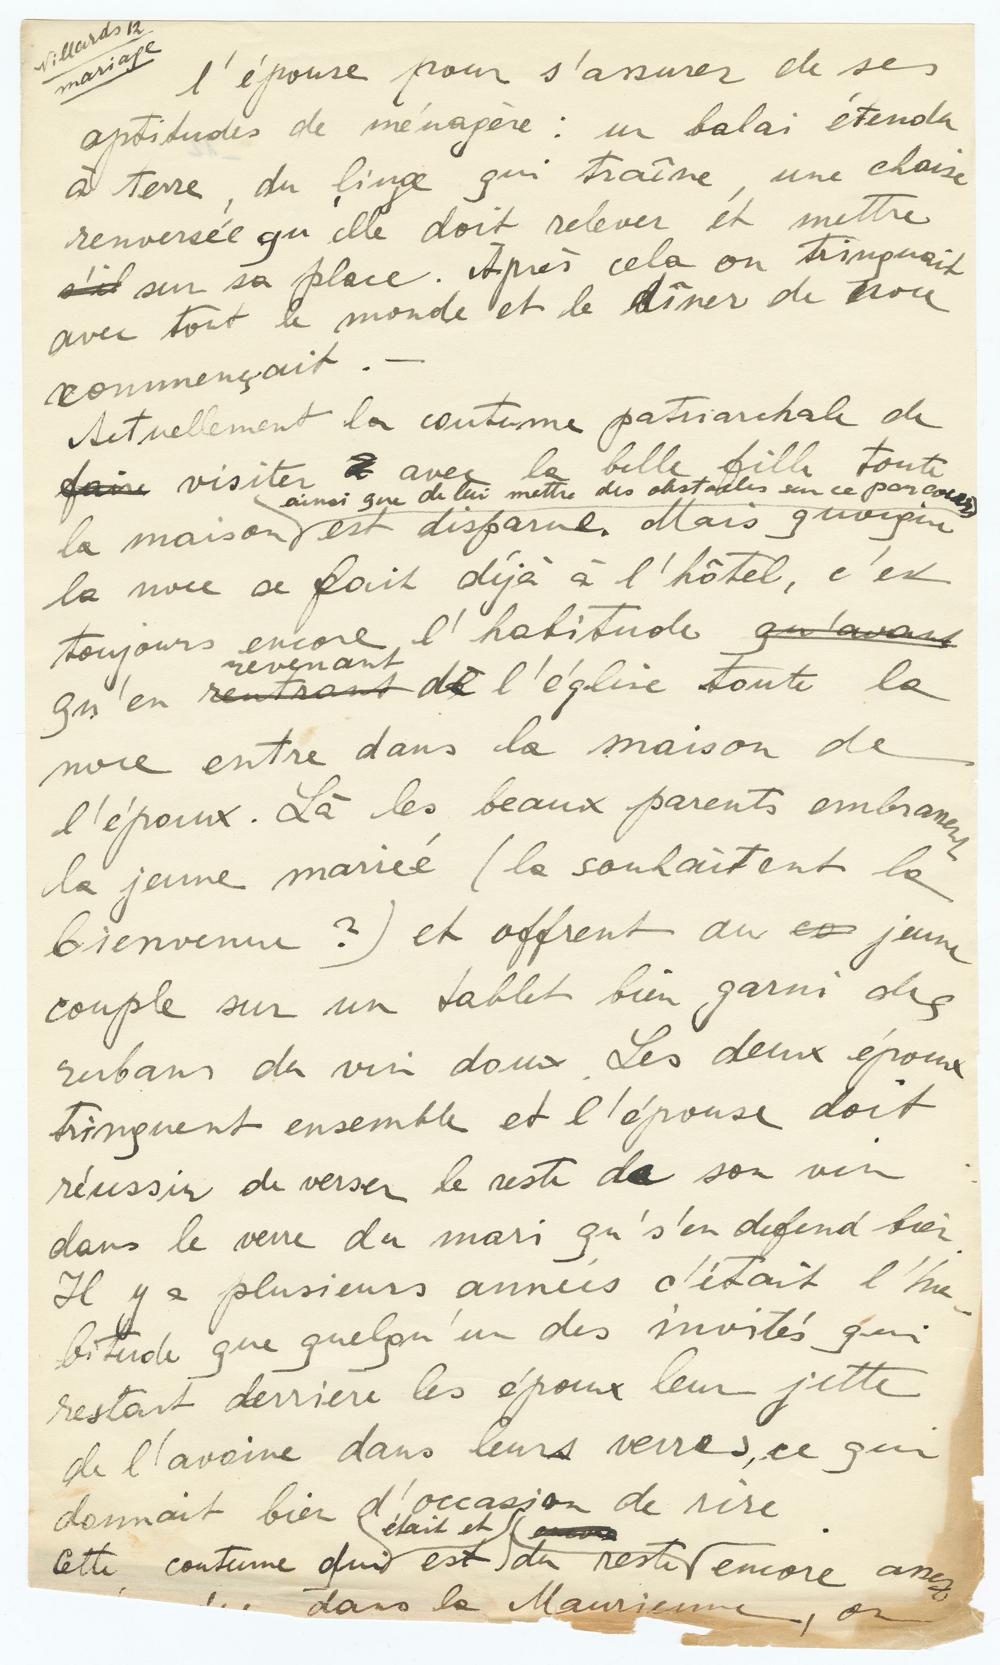 Villards 12
mariage
l'épouse pour s'assurer de ses
aptitudes de ménagère : un balai étendu
à terre, du linge qui traîne, une chaise
renversée qu'elle doit relever et mettre
s'il sur sa place. Après cela on trinquait
avec tout le monde et le dîner de noce
commençait. —
Actuellement la coutume patriarchale de
faire visiter avec la belle fille toute
ainsi que de lui mettre des obstacles sur ce parcours
la maison est disparue. Mais quoique
la noce se fait déjà à l'hôtel, c'est
toujours encore l'habitude qu'avant
revenant
qu'en rentrant de l'église toute la
noce entre dans la maison de
l'époux. Là les beaux parents embrassent
la jeune mariée (la souhaitent la
bienvenue ?) et offrent au co jeune
couple sur un tablet bien garni des
rubans du vin doux. Les deux époux
trinquent ensemble et l'épouse doit
réussir de verser le reste de son vin
dans le verre du mari qu's'en defend bien.
Il y a plusieurs années c'était l'ha-
bitude que quelqu'un des invités qui
restait derrière les époux leur jette
de l'avoine dans leurs verres, ce qui
donnait bien d'occasion de rire
était et encore
Cette coutume qui est du reste encore assez
dans la Maurienne, on